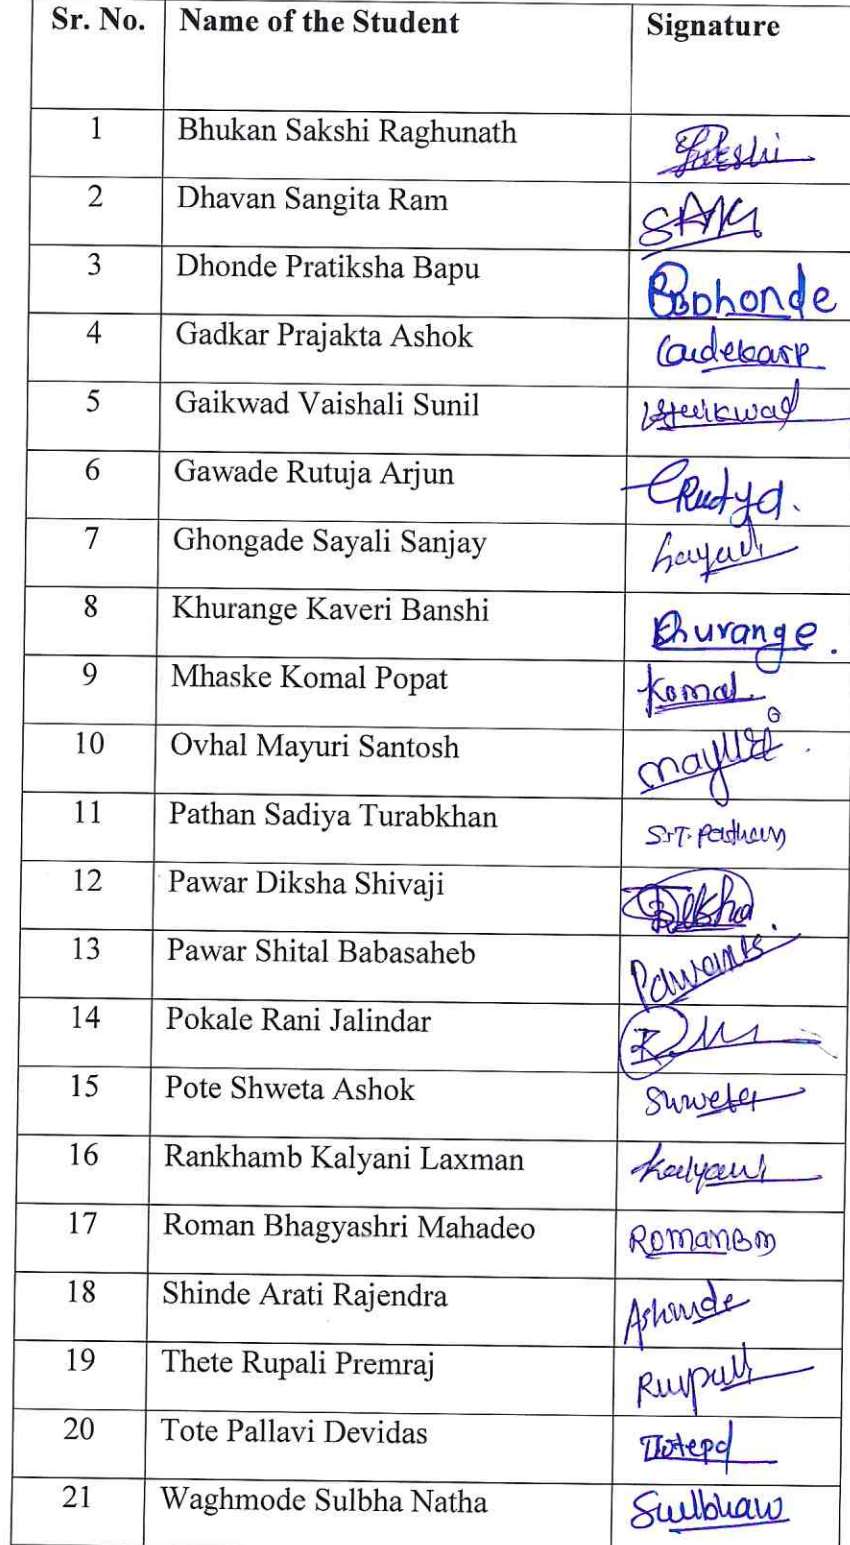 Sr. No. Name of the Student Signature
1 Bhukan Sakshi Raghunath Sakshi
2 Dhavan Sangita Ram
3 Dhonde Pratiksha Bapu
4 Gadkar Prajakta Ashok
5 Gaikwad Vaishali Sunil
6 Gawade Rutuja Arjun
7 Ghongade Sayali Sanjay Sayali
8 Khurange Kaveri Banshi Khurange.
9 Mhaske Komal Popat Komal.
10 Ovhal Mayuri Santosh
11 Pathan Sadiya Turabkhan S.T. Pathan
12 Pawar Diksha Shivaji Diksha.
13 Pawar Shital Babasaheb
14 Pokale Rani Jalindar
15 Pote Shweta Ashok Shweta
16 Rankhamb Kalyani Laxman Kalyani
17 Roman Bhagyashri Mahadeo RomanBM
18 Shinde Arati Rajendra AShinde
19 Thete Rupali Premraj Rupali
20 Tote Pallavi Devidas TotePd
21 Waghmode Sulbha Natha